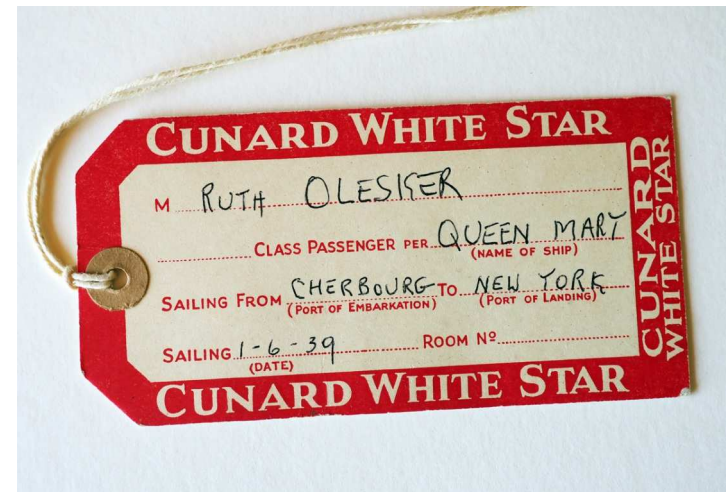 CUNARD WHITE STAR
M RUTH OLESKER
CLASS PASSENGER PER QUEEN MARY
(NAME OF SHIP)
SAILING FROM CHERBOURG TO NEW YORK
(PORT OF EMBARKATION) (PORT OF LANDING)
SAILING 1-6-39 ROOM Nº
(DATE)
CUNARD WHITE STAR
CUNARD
WHITE STAR